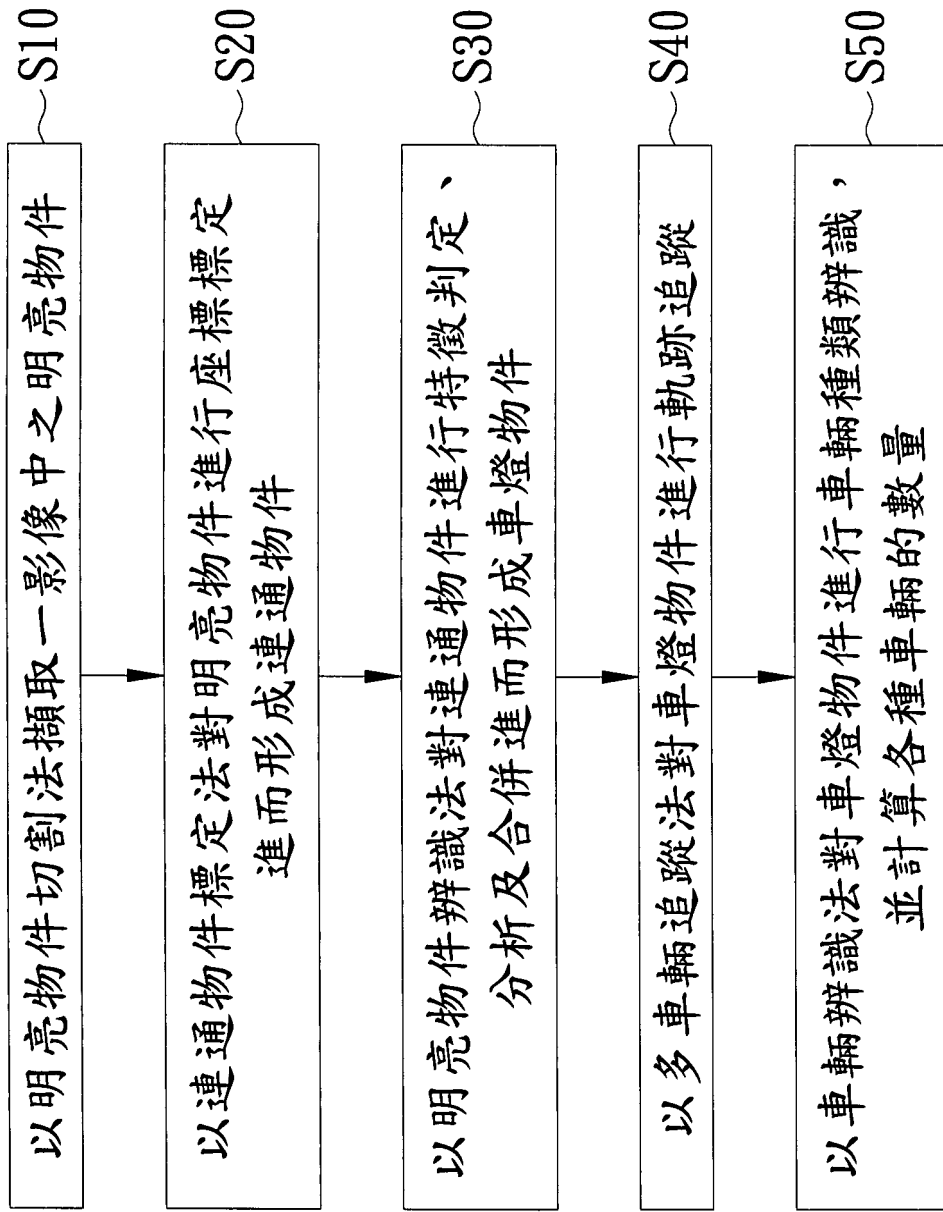 以明亮物件切割法擷取一影像中之明亮物件
S10
以連通物件標定法對明亮物件進行座標標定
進而形成連通物件
S20
以明亮物件辨識法對連通物件進行特徵判定、
分析及合併進而形成車燈物件
S30
以多車輛追蹤法對車燈物件進行軌跡追蹤
S40
以車輛辨識法對車燈物件進行車輛種類辨識,
並計算各種車輛的數量
S50